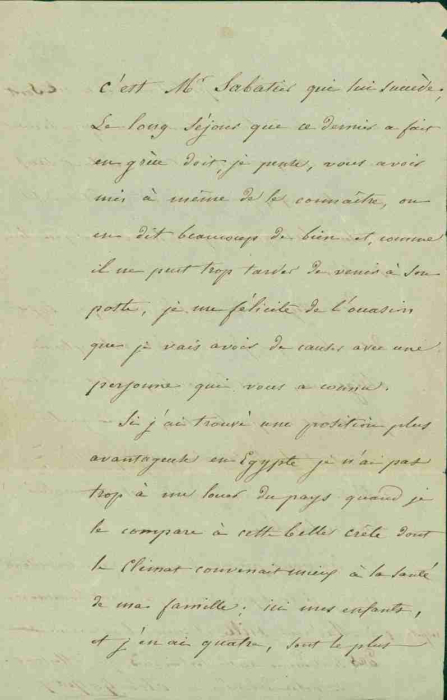 c'est Mr Sabatier qui lui succède.
Le long Séjour que ce dernier a fait
en grèce doit, je pense, vous avoir
mis à même de le connaître, on
en dit beaucoup de bien et, comme
il ne peut trop tarder de venir à Son
poste, je me félicite de l'occasion
que je vais avoir de causer avec une
personne qui vous a connu.
Si j'ai trouvé une position plus
avantageuse en Egypte je n'ai pas
trop à me louer du pays quand je
le compare à cette belle crète dont
le Climat convenait mieux à la santé
de ma famille; ici mes enfants,
et j'en ai quatre, sont le plus